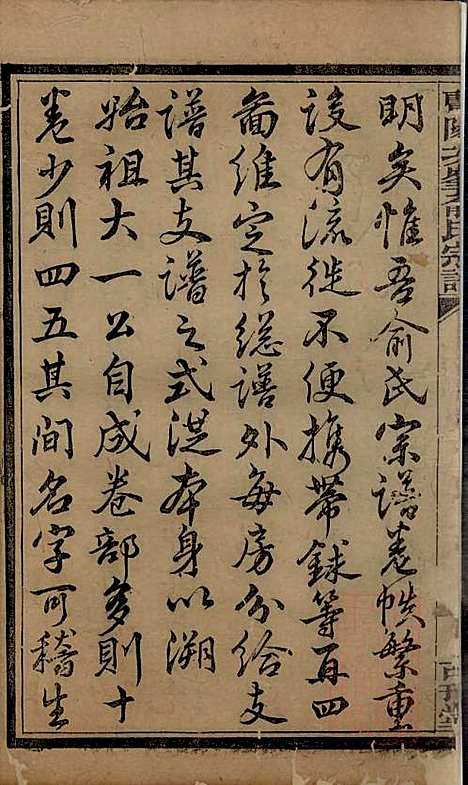 明矣惟吾俞氏宗譜卷帙繁重
设有流徙不便携带錄等再四
啚維定於總譜外每房分給支
譜其支譜之式従本身以溯
始祖大一公自成卷部多則十
卷少則四五其间名字可稽生
俞氏宗譜